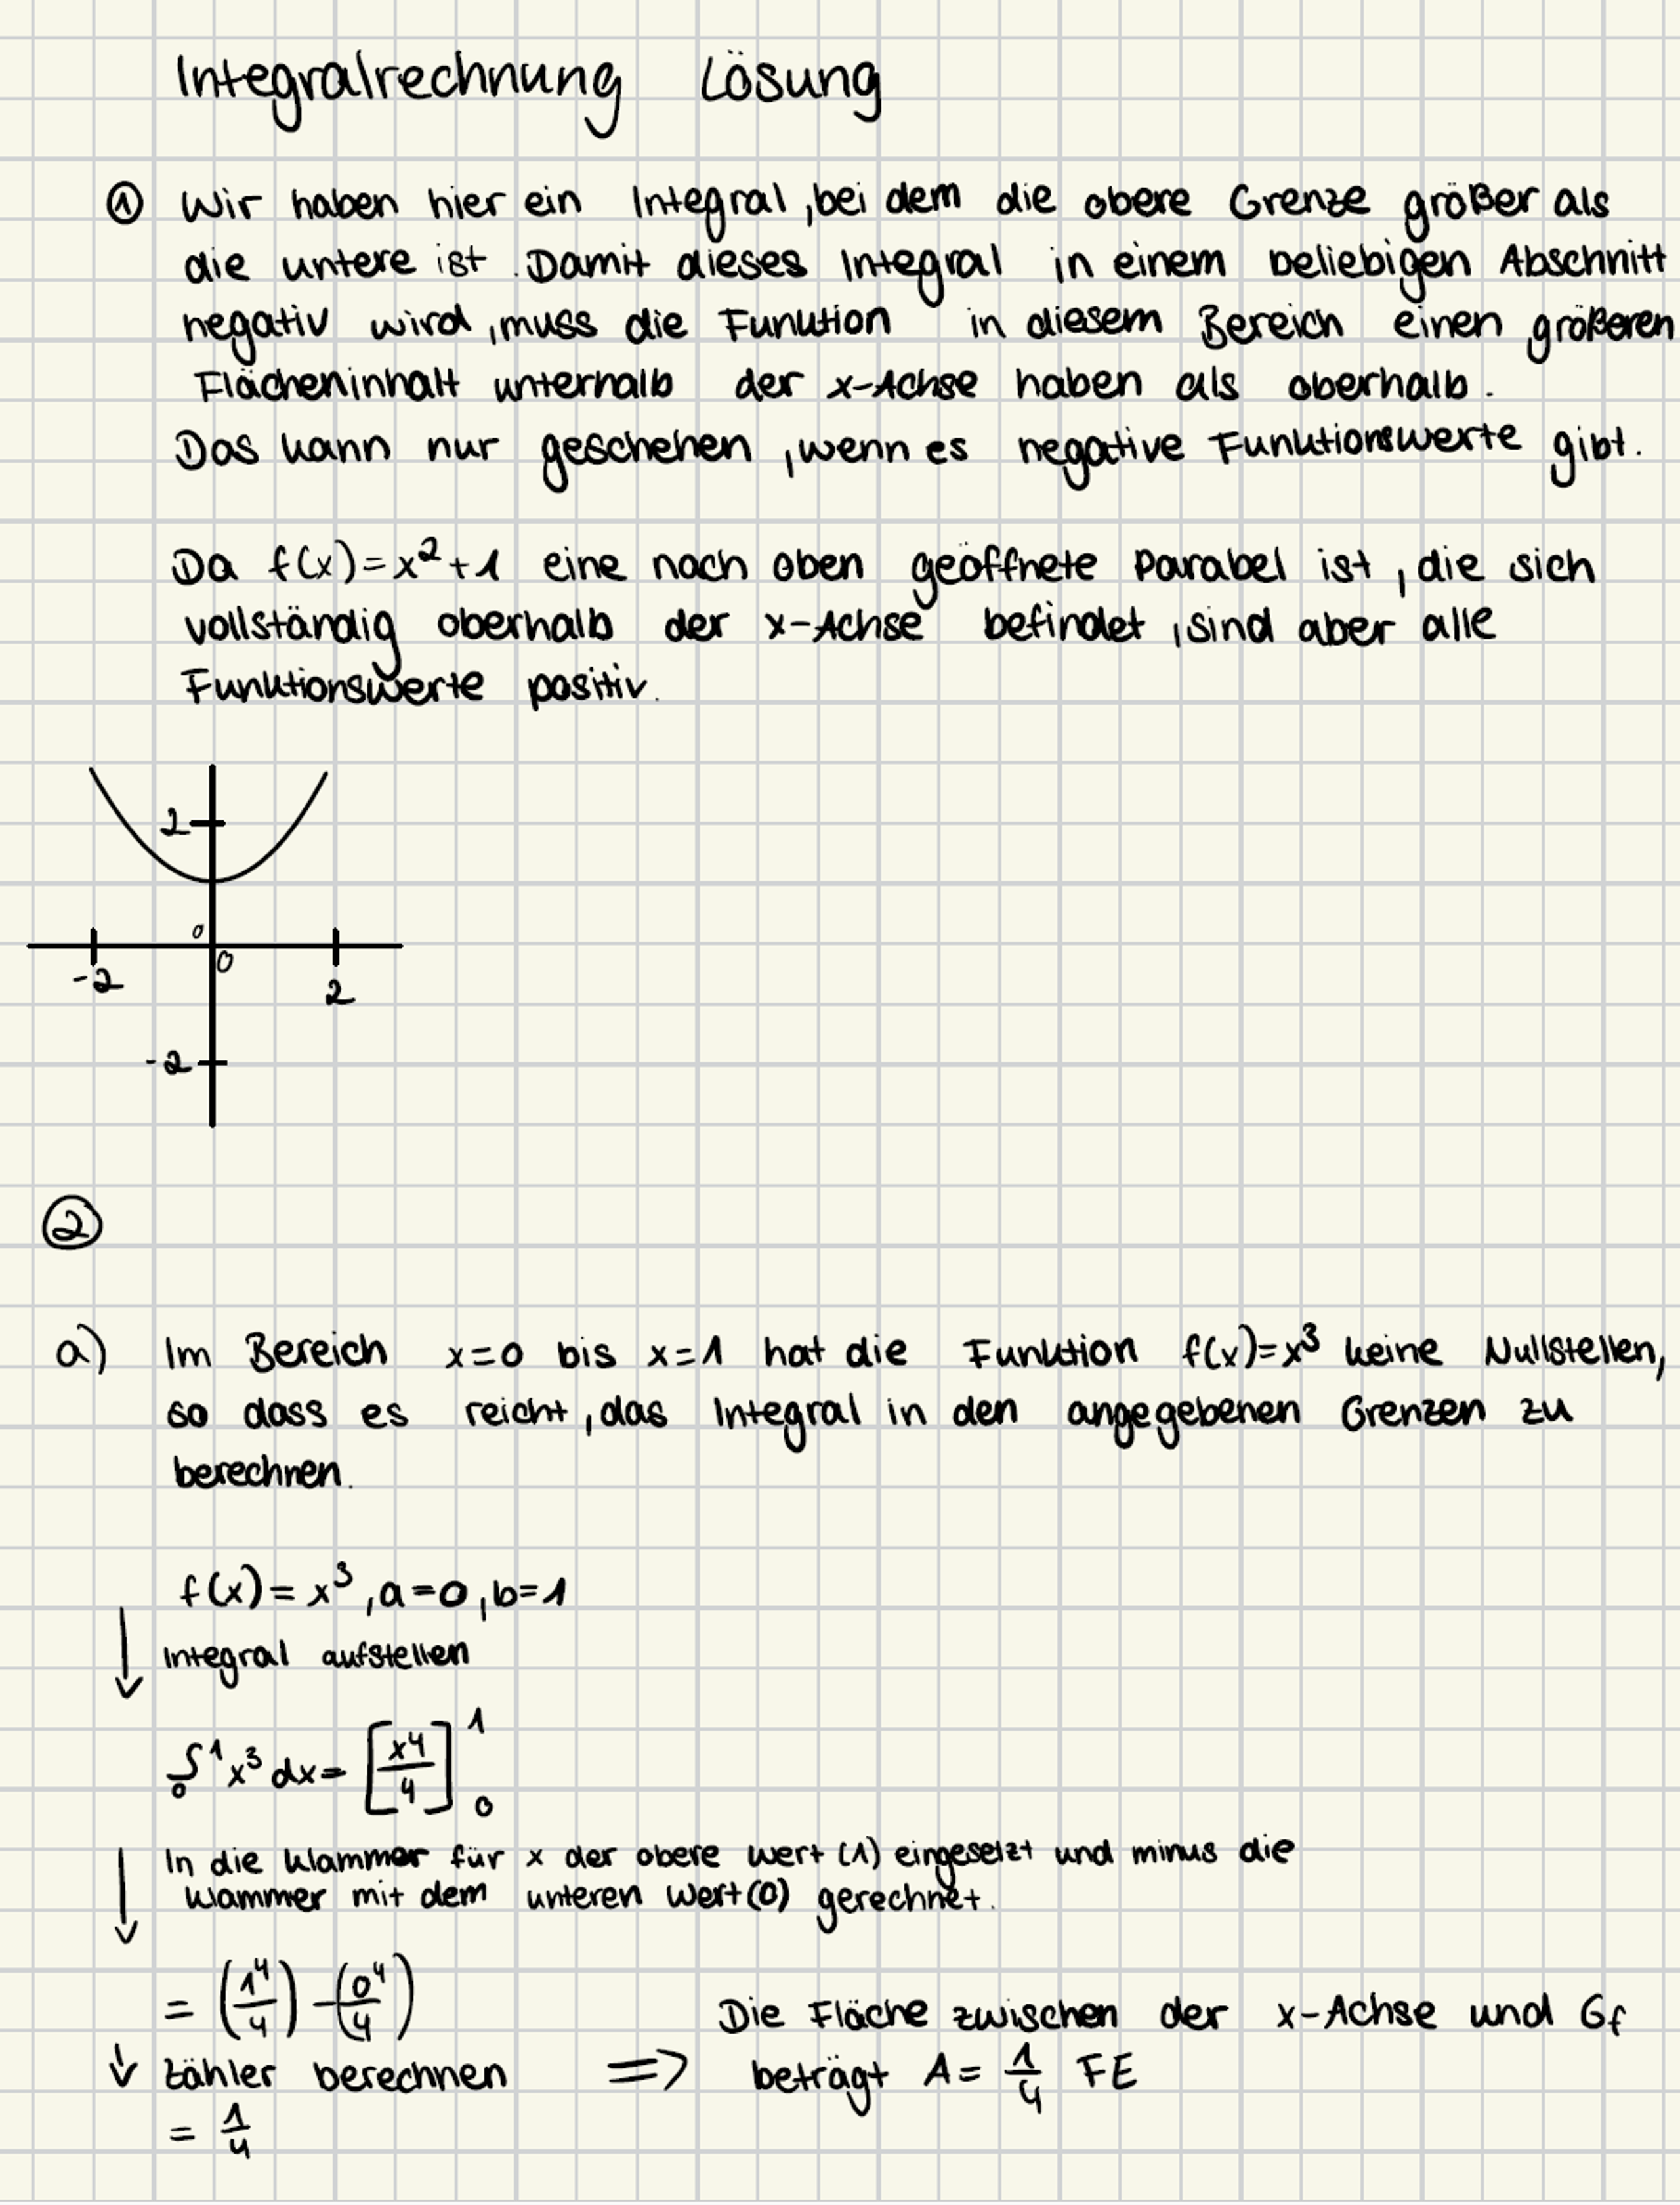 Integralrechnung Lösung
① Wir haben hier ein Integral, bei dem die obere Grenze größer als
die untere ist. Damit dieses Integral in einem beliebigen Abschnitt
negativ wird, muss die Funktion in diesem Bereich einen größeren
Flächeninhalt unterhalb der x-Achse haben als oberhalb.
Das kann nur geschehen, wenn es negative Funktionswerte gibt.
Da f(x)=x²+1 eine nach oben geöffnete Parabel ist, die sich
vollständig oberhalb der x-Achse befindet, sind aber alle
Funktionswerte positiv.
2
0
-2 0 2
-2
②
a) Im Bereich x=0 bis x=1 hat die Funktion f(x)=x³ keine Nullstellen,
so dass es reicht, das Integral in den angegebenen Grenzen zu
berechnen.
f(x) = x³, a=0, b=1
↓ Integral aufstellen
₀∫¹ x³ dx = [x⁴/4]¹₀
↓ In die Klammer für x der obere Wert (1) eingesetzt und minus die
Klammer mit dem unteren Wert (0) gerechnet.
= (1⁴/4) - (0⁴/4)
↓ Zähler berechnen
= 1/4
=> Die Fläche zwischen der x-Achse und Gf
beträgt A = 1/4 FE